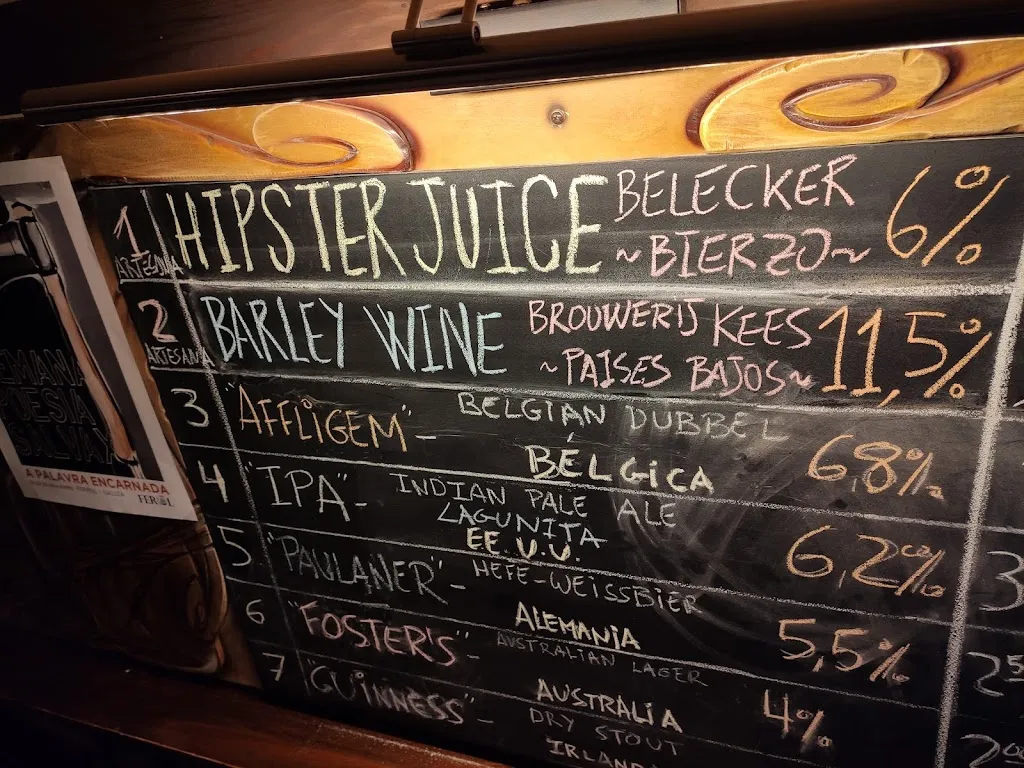 1 HIPSTER JUICE BELECKER 6%
ARTESANA ~BIERZO~
2 BARLEY WINE BROUWERIJ KEES 11,5%
ARTESANA ~PAISES BAJOS~
3 "AFFLIGEM"- BELGIAN DUBBEL
BÉLGICA 6,8%
4 "IPA"- INDIAN PALE ALE
LAGUNITA
EE.U.U. 6,2%
5 "PAULANER"- HEFE-WEISSBIER
ALEMANIA 5,5%
6 "FOSTER'S"- AUSTRALIAN LAGER
AUSTRALIA 4%
7 "GUINNESS"- DRY STOUT
EMANA
POESIA
SALVAX
A PALAVRA ENCARNADA
FERROL